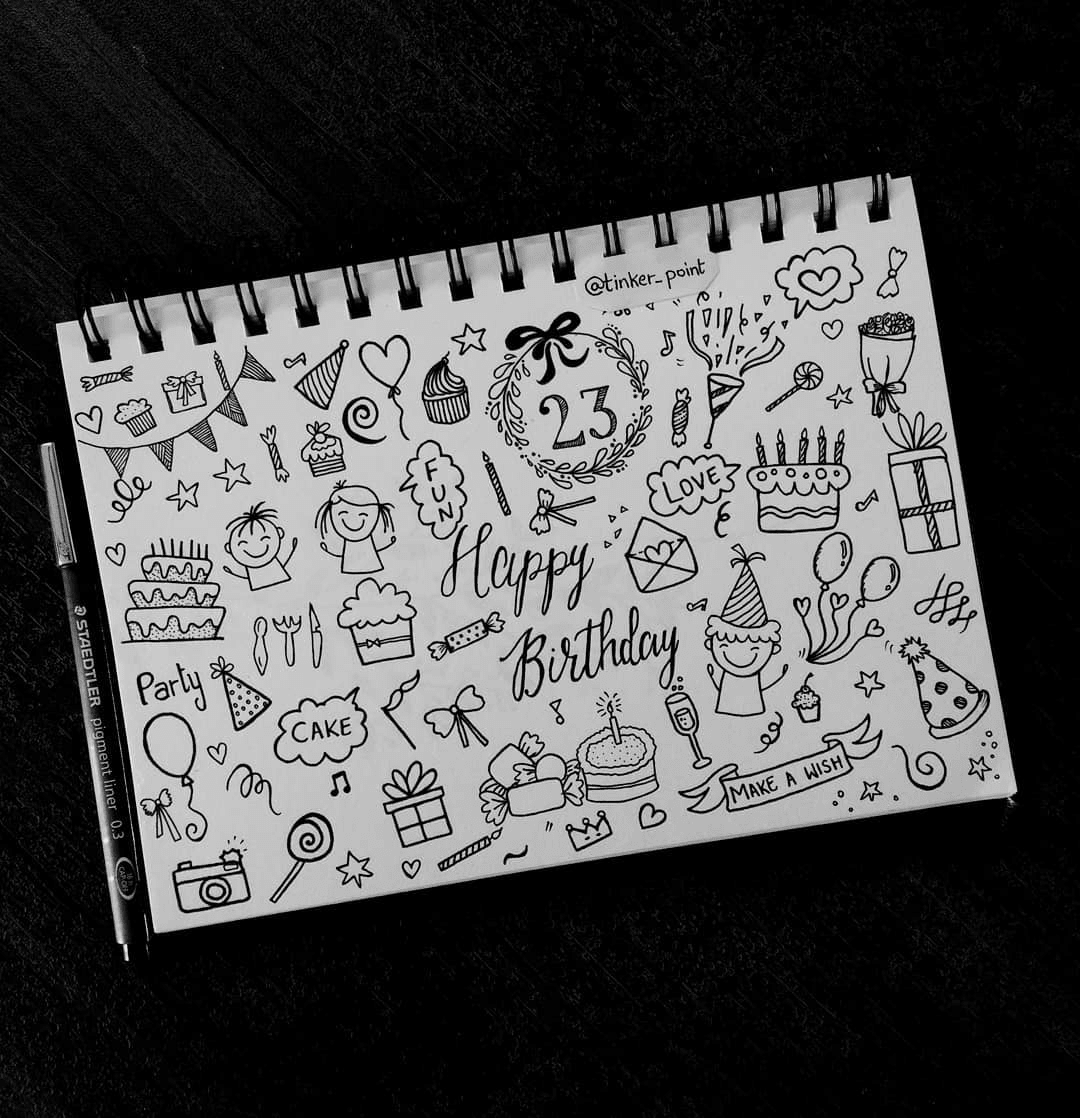 @tinker_point
23
FUN
LOVE
Happy
Birthday
Party
CAKE
MAKE A WISH
STAEDTLER pigment liner 0.3